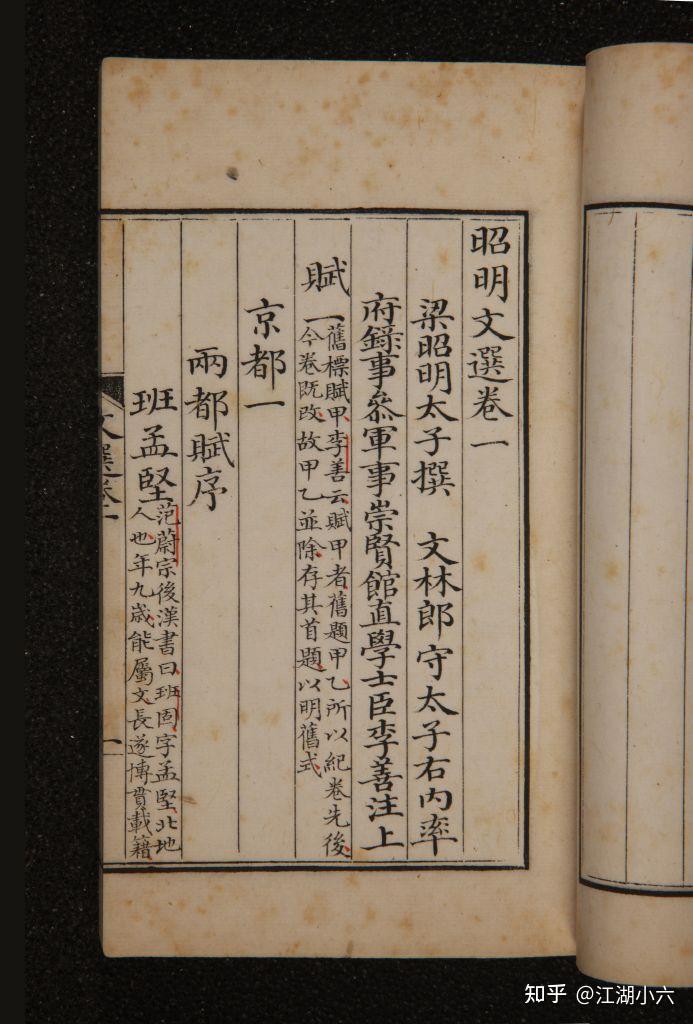 昭明文選卷一
梁昭明太子撰　文林郎守太子右內率
府錄事叅軍事崇賢館直學士臣李善注上
賦一舊標賦甲李善云賦甲者舊題甲乙所以紀卷先後
今卷既改故甲乙並除存其首題以明舊式
京都一
兩都賦序
班孟堅范蔚宗後漢書曰班固字孟堅北地
人也年九歲能屬文長遂博貫載籍
文選卷一
一
知乎 @江湖小六